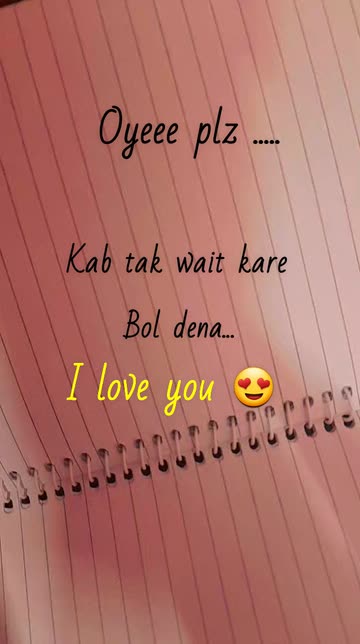 Oyeee plz .....
Kab tak wait kare
Bol dena...
I love you 😍